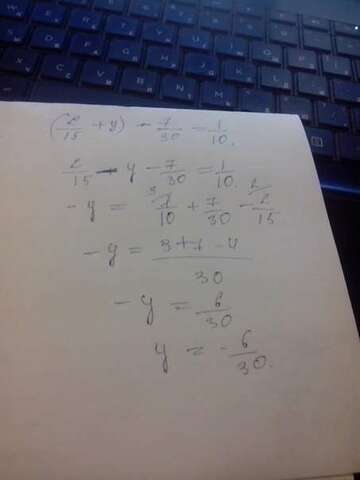 (2/15 + y) - 7/30 = 1/10.
2/15 - y - 7/30 = 1/10.
-y = 1/10 + 7/30 - 2/15
-y = 3+7-4/30
-y = 6/30
y = -6/30.